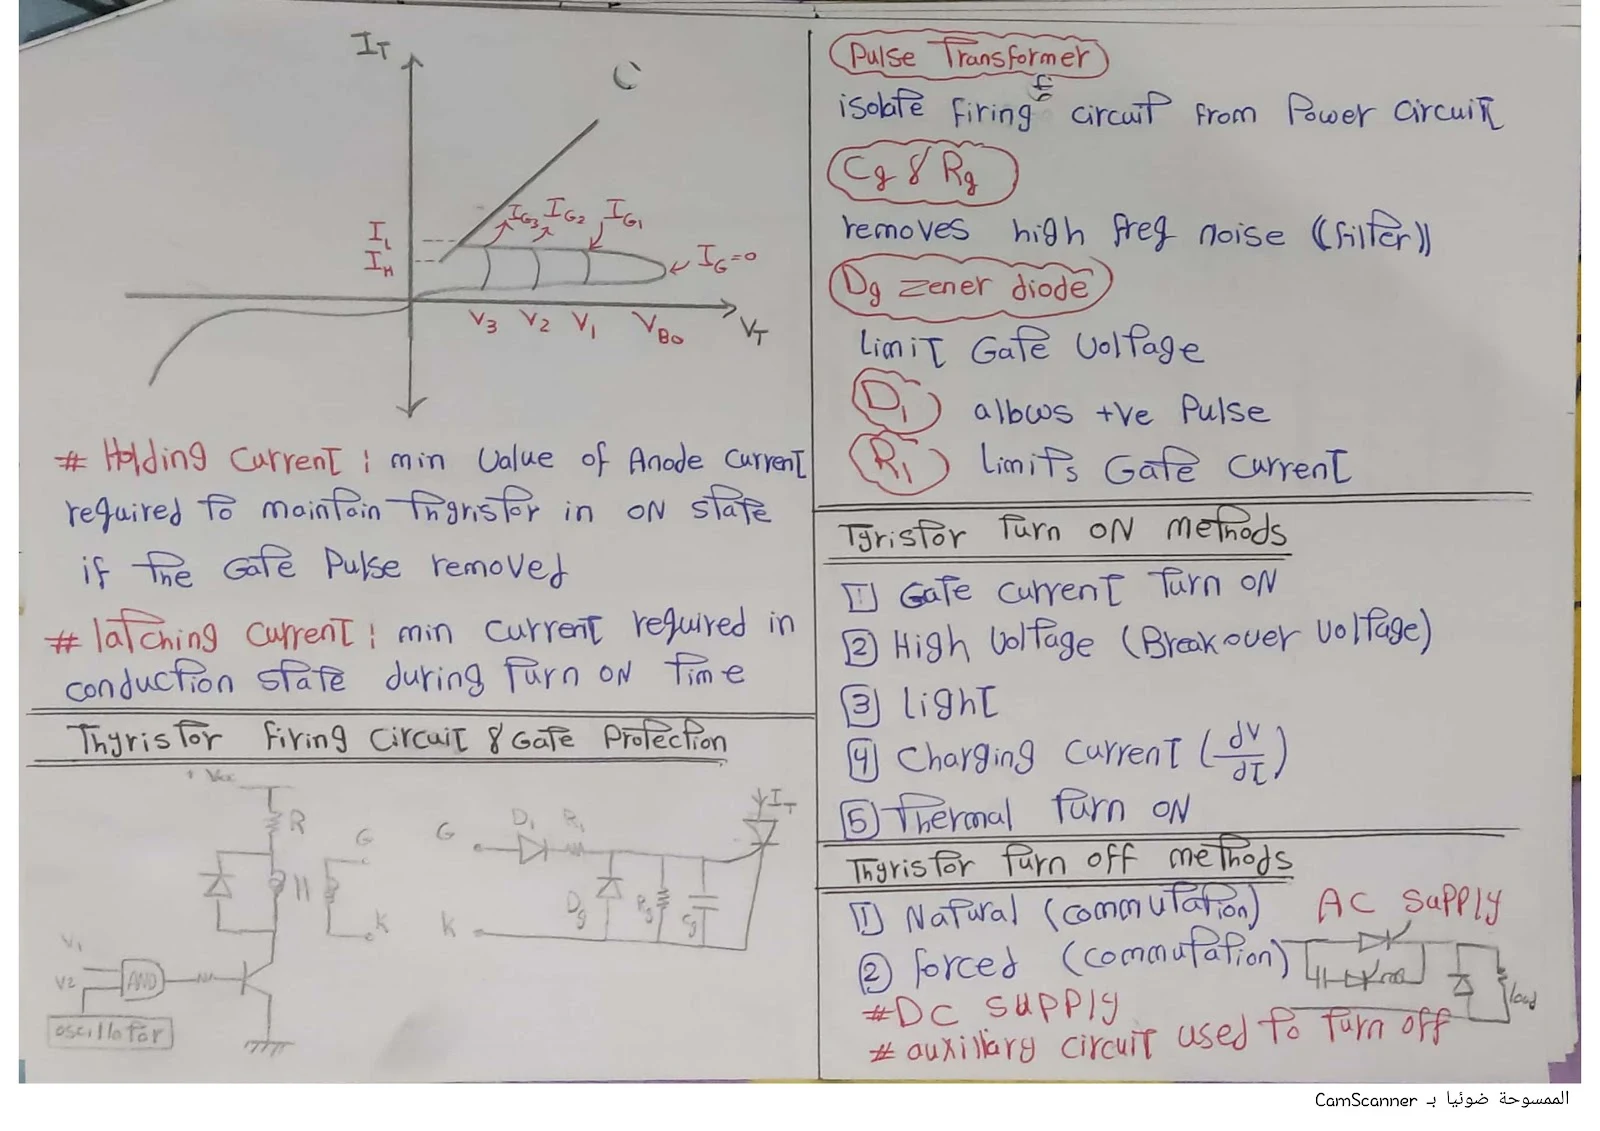 I_T
I_L
I_H
I_G3 I_G2 I_G1
I_G=0
V_3 V_2 V_1 V_BO V_T
# Holding Current : min Value of Anode Current
required to maintain Thyristor in ON state
if the Gate Pulse removed
# latching Current : min current required in
conduction state during Turn ON Time
Thyristor Firing Circuit & Gate Protection
+ Vcc
R
G
K
V1
V2
AND
oscillator
G
D1
R1
I_T
Dg
Rg
Cg
K
Pulse Transformer
isolate firing circuit from Power Circuit
Cg & Rg
removes high freq noise ((filter))
Dg zener diode
Limit Gate Voltage
D1 allows +ve Pulse
R1 Limits Gate Current
Tyristor Turn ON methods
1 Gate Current Turn ON
2 High Voltage (Breakover Voltage)
3 Light
4 Charging Current (dv/dt)
5 Thermal Turn ON
Thyristor Turn off methods
1 Natural (commutation) AC Supply
2 forced (commutation)
load
# DC Supply
# auxillary circuit used to Turn off
الممسوحة ضوئيا بـ CamScanner